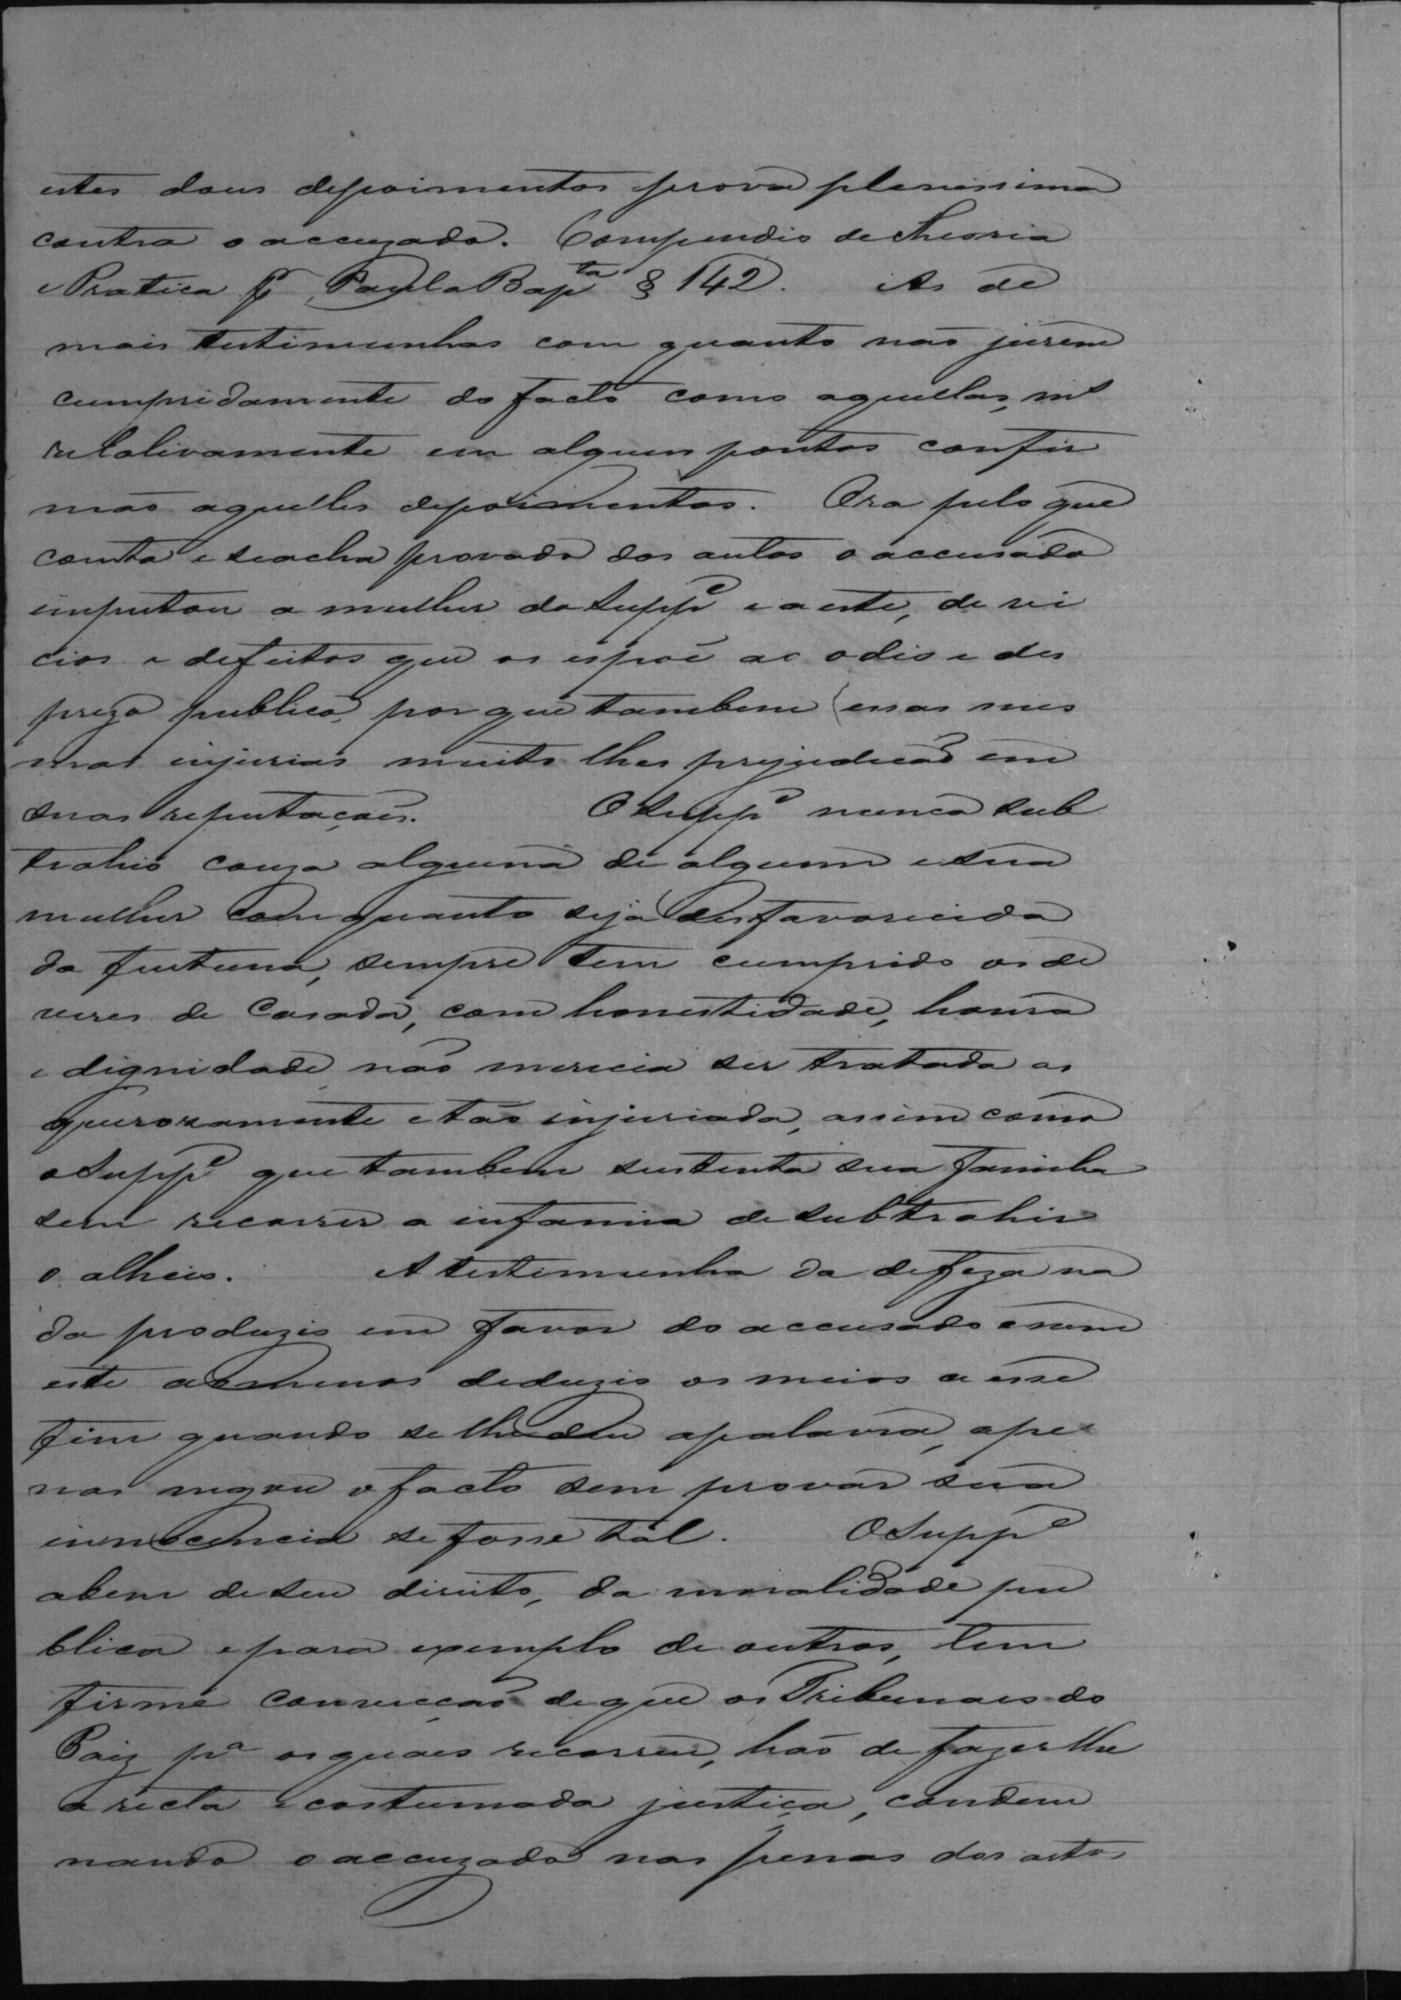 estes dous depoimentos prova plenissima
contra o accuzado. Compendio de Theoria
e Pratica Pr Paula Bapta § 142. As de
mais testimunhas com quanto não jurem
cumpridamente do facto como aquellas,
relativamente em alguns pontos confir
mão aquelles depoimentos. Ora pelo que
consta e se acha provado dos autos o accusado
imputou a mulher do Suppe e a este, de vi
cios e defeitos que os espoe ao odio e des
prezo publico, por que tambem essas mes
mas injurias muito lhes prejudicão em
suas reputações. O Suppe nunca sub
trahio couza alguma de alguem e sua
mulher com quanto seja desfavorecida
da fortuna, sempre tem cumprido os de
veres de casada, com honestidade, honra
e dignidade não merecia ser tratada as
querozamente e tão injuriada, assim como
o Suppe que tambem sustenta sua familha
sem recorrer a infamia de subtrahir
o alheio. A testimunha da defeza na
da produzio em favor do accusado e nem
este ao menos deduzio os meios a esse
fim quando se lhe deu a palavra, ape
nas negou o facto sem provar sua
innocencia se fosse tal. O Suppe
a bem de seu direito, da moralidade pu
blica e para exemplo de outros, tem
firme convicção de que os Tribunaes do
Paiz pa os quaes recorreu, hão de fazer lhe
a recta e costumada justiça, condem
nando o accuzado nas penas dos artos